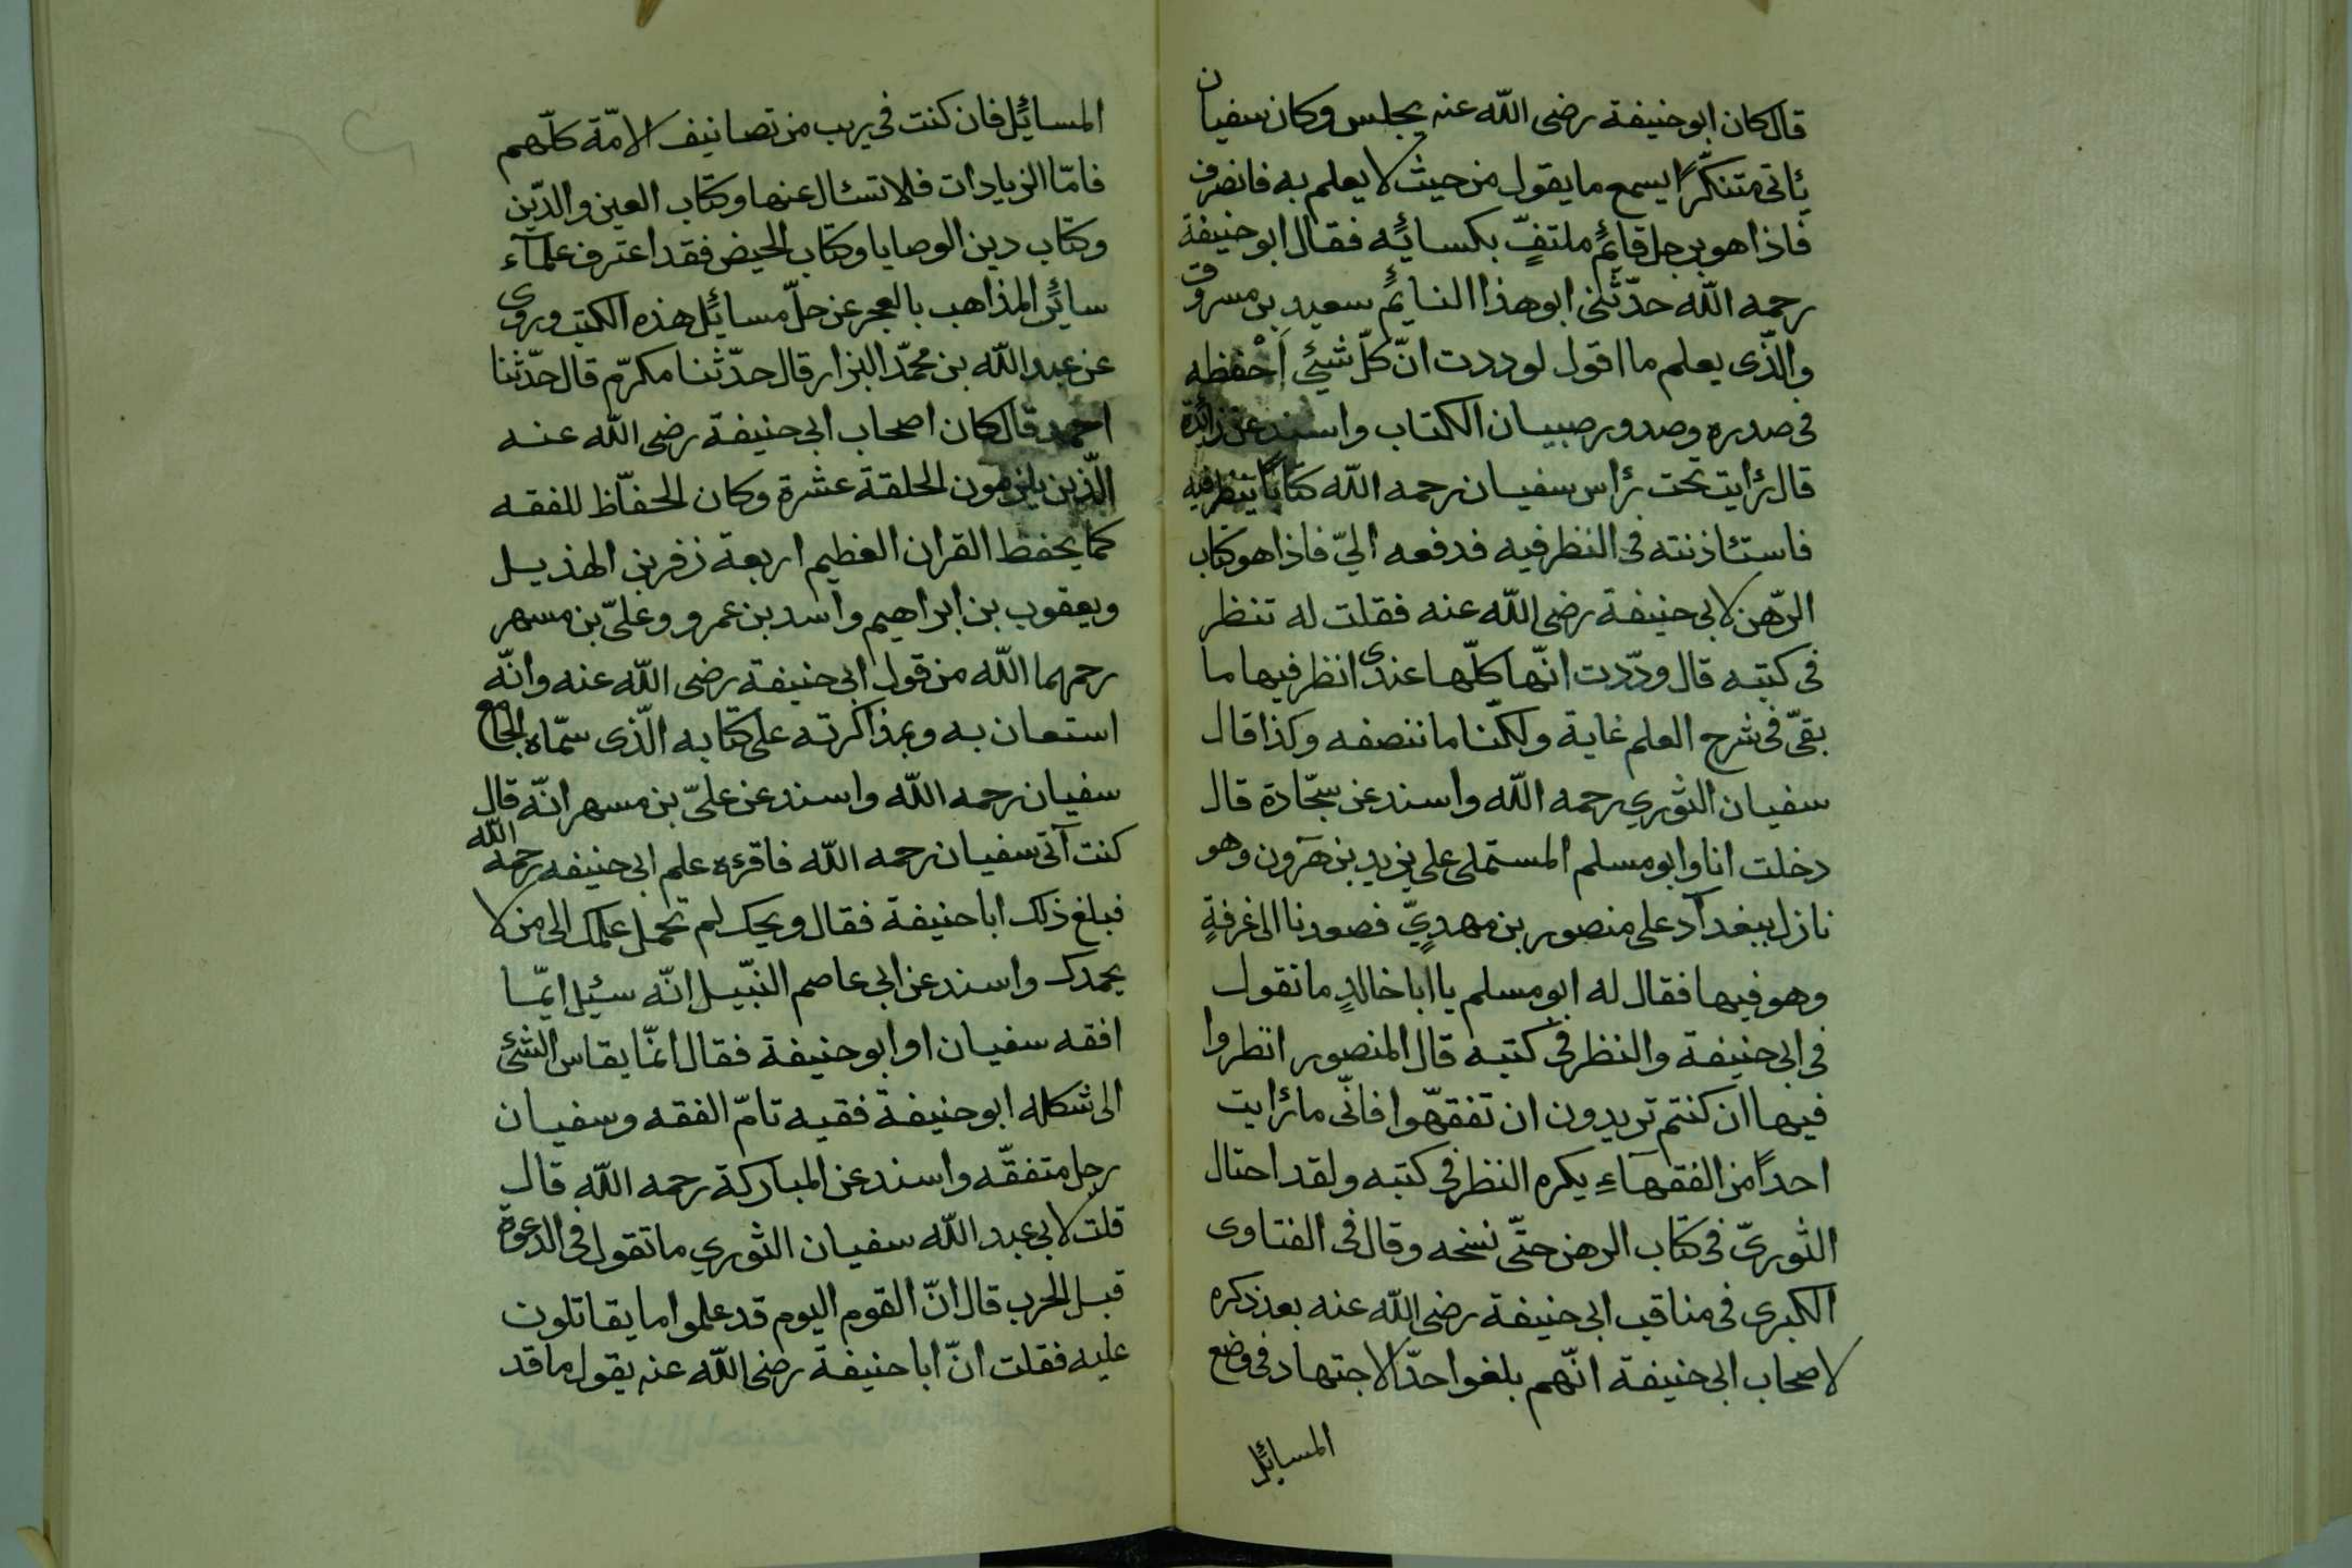 قال كان ابو حنيفة رضى الله عنه يجلس وكان سفيان
ئاتى متنكّرًا يسمع ما يقول من حيث لا يعلم به فانصرف
فاذا هو برجل قائمٍ ملتفٍّ بكسائه فقال ابو حنيفة
رحمه الله حدّثنى ابو هذا النايم سعيد بن مسروق
والّذى يعلم ما اقول لوددت انّ كلّ شيئ اَحْفظه
فى صدره وصدور صبيان الكتاب واسند عن زائدة
قال رٔايت تحت رٔاس سفيان رحمه الله كتابًا ينظر فيه
فاستٔاذنته فى النظر فيه فدفعه اليّ فاذا هو كتاب
الرّهن لابى حنيفة رضى الله عنه فقلت له تنظر
فى كتبه قال ودّدت انّها كلّها عندى انظر فيها ما
بقّى فى شرح العلم غاية ولكنّنا ما ننصفه وكذا قال
سفيان الثوري رحمه الله واسند عن سجّادة قال
دخلت انا وابو مسلم المستملى على يزيد بن هرون وهو
نازل ببغداد على منصور بن مهديٍّ فصعدنا الى غرفةٍ
وهو فيها فقال له ابو مسلم يا ابا خالدٍ ما تقول
فى ابى حنيفة والنظر فى كتبه قال المنصور انظروا
فيها ان كنتم تريدون ان تفقهّوا فانّى ما رٔايت
احدًا من الفقهآءِ يكره النظر فى كتبه ولقد احتال
الثورىّ فى كتاب الرهن حتّى نسخه وقال فى الفتاوى
الكبرى فى مناقب ابى حنيفة رضى الله عنه بعد ذكره
لاصحاب ابى حنيفة انّهم بلغوا حدّ الاجتهاد فى وضع
المسائٔل
المسائٔل فان كنت فى ريب من تصانيف الامّة كلّهم
فامّا الزيادات فلا تسٔال عنها وكتاب العين والدّين
وكتاب دين الوصايا وكتاب الحيض فقد اعترف علمآء
سائٔر المذاهب بالعجز عن حلّ مسائٔل هذه الكتب وروى
عن عبد الله بن محمّد البزار قال حدّثنا مكرّم قال حدّثنا
احمد قال كان اصحاب ابى حنيفة رضى الله عنه
الّذين يلزمون الحلقة عشرة وكان الحفّاظ للفقه
كما يحفظ القران العظيم اربعة زفر بن الهذيل
ويعقوب بن ابراهيم واسد بن عمرو وعلىّ بن مسهر
رحمهما الله من قول ابى حنيفة رضى الله عنه وانّه
استعان به وبمذاكرته على كتابه الّذى سمّاه الجامع
سفيان رحمه الله واسند عن علىّ بن مسهر انّه قال
كنت آتى سفيان رحمه الله فاقرئه علم ابى حنيفه رحمه الله
فبلغ ذلك ابا حنيفة فقال ويحك لم تحمل علمك الى من لا
يحمدك واسند عن ابى عاصم النبّيل انّه سئيل ايّما
افقه سفيان او ابو حنيفة فقال انمّا يقاس الشئ
الى شكله ابو حنيفة فقيه تامّ الفقه وسفيان
رجل متفقّه واسند عن المباركة رحمه الله قال
قلت لابى عبد الله سفيان الثوري ما تقول فى الدعوة
قبل الحرب قال انّ القوم اليوم قد علموا ما يقاتلون
عليه فقلت انّ ابا حنيفة رضى الله عنه يقول ما قد